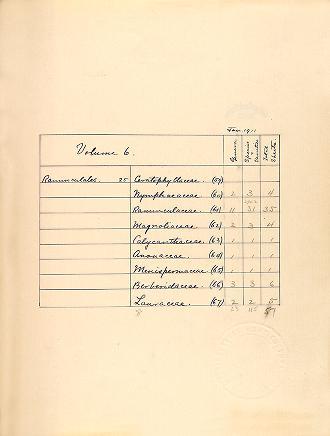 Jan. 1911
Volume 6. Genera Species Varieties Total Sheets
Ranunculales. 25 Ceratophyllaceae. (59)
Nymphaeaceae. (60) 2 3 4
Ranunculaceae. (61) 11 31 35
Magnoliaceae. (62) 2 3 4
Calycanthaceae. (63) 1 1 1
Anonaceae. (64) 1 1 1
Menispermaceae. (65) 1 1 1
Berberidaceae. (66) 3 3 6
Lauraceae. (67) 2 2 5
8 23